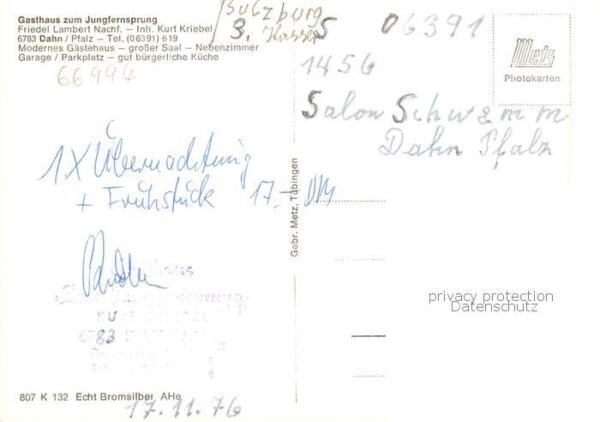 Gasthaus zum Jungfernsprung
Friedel Lambert Nachf. – Inh. Kurt Kriebel
6783 Dahn / Pfalz – Tel. (06391) 619
Modernes Gästehaus – großer Saal – Nebenzimmer
Garage / Parkplatz – gut bürgerliche Küche
66994
Sulzburg
3.
06391
1456
Metz
Photokarten
Salon Schwamm
Dahn Pfalz
1 X Übernachtung
+ Frühstück 17.- DM
Gebr. Metz, Tübingen
6783
privacy protection
Datenschutz
807 K 132 Echt Bromsilber, AHe
17.11.76